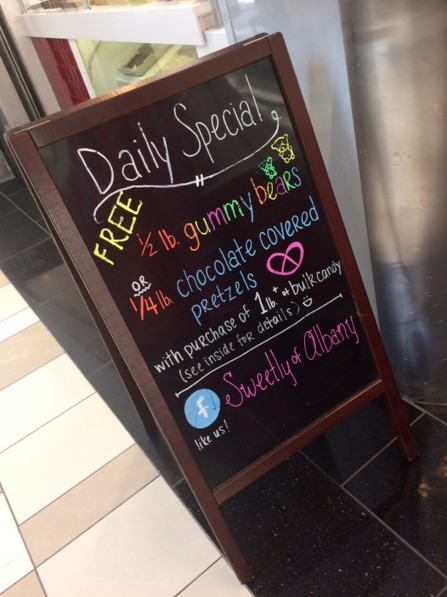 Daily Special
FREE
1/2 lb. gummy bears
OR
1/4 lb. chocolate covered
pretzels
with purchase of 1 lb.+ of bulk candy
(see inside for details)
f Sweetly of Albany
like us!